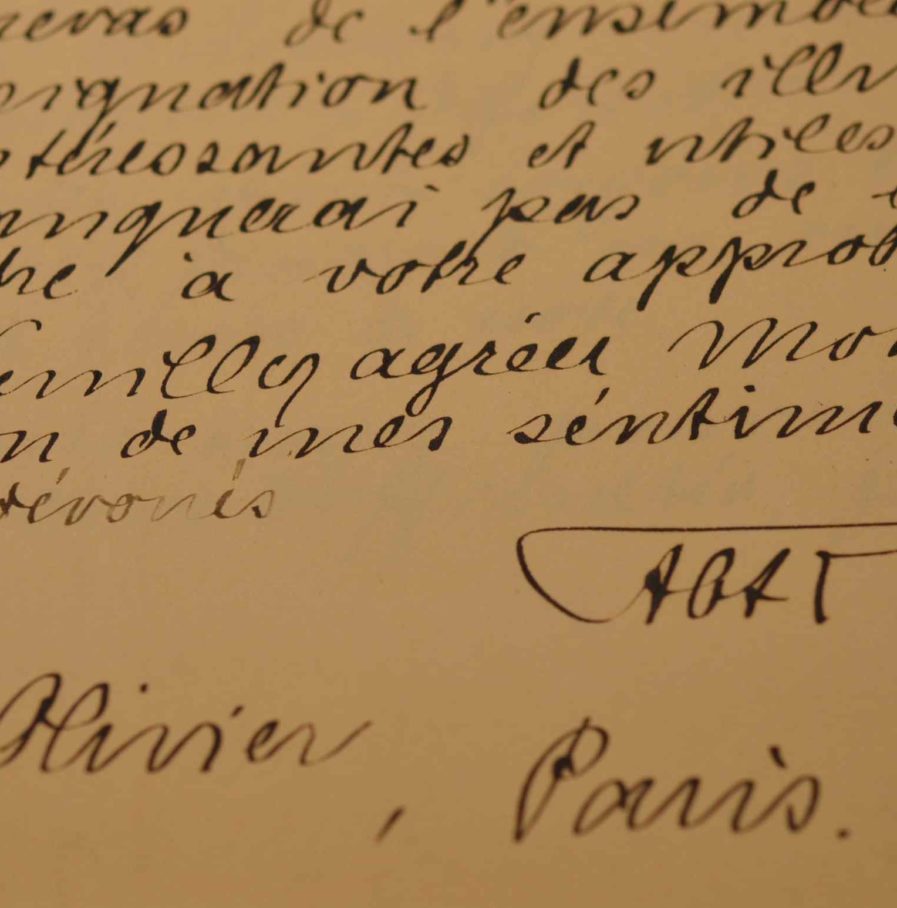 de l'ensemble
ignation des illu
téressantes et utiles
anquerai pas de
tre à votre approb
euillez agréer Mo
on de mes séntime
dévoués
Olivier, Paris.